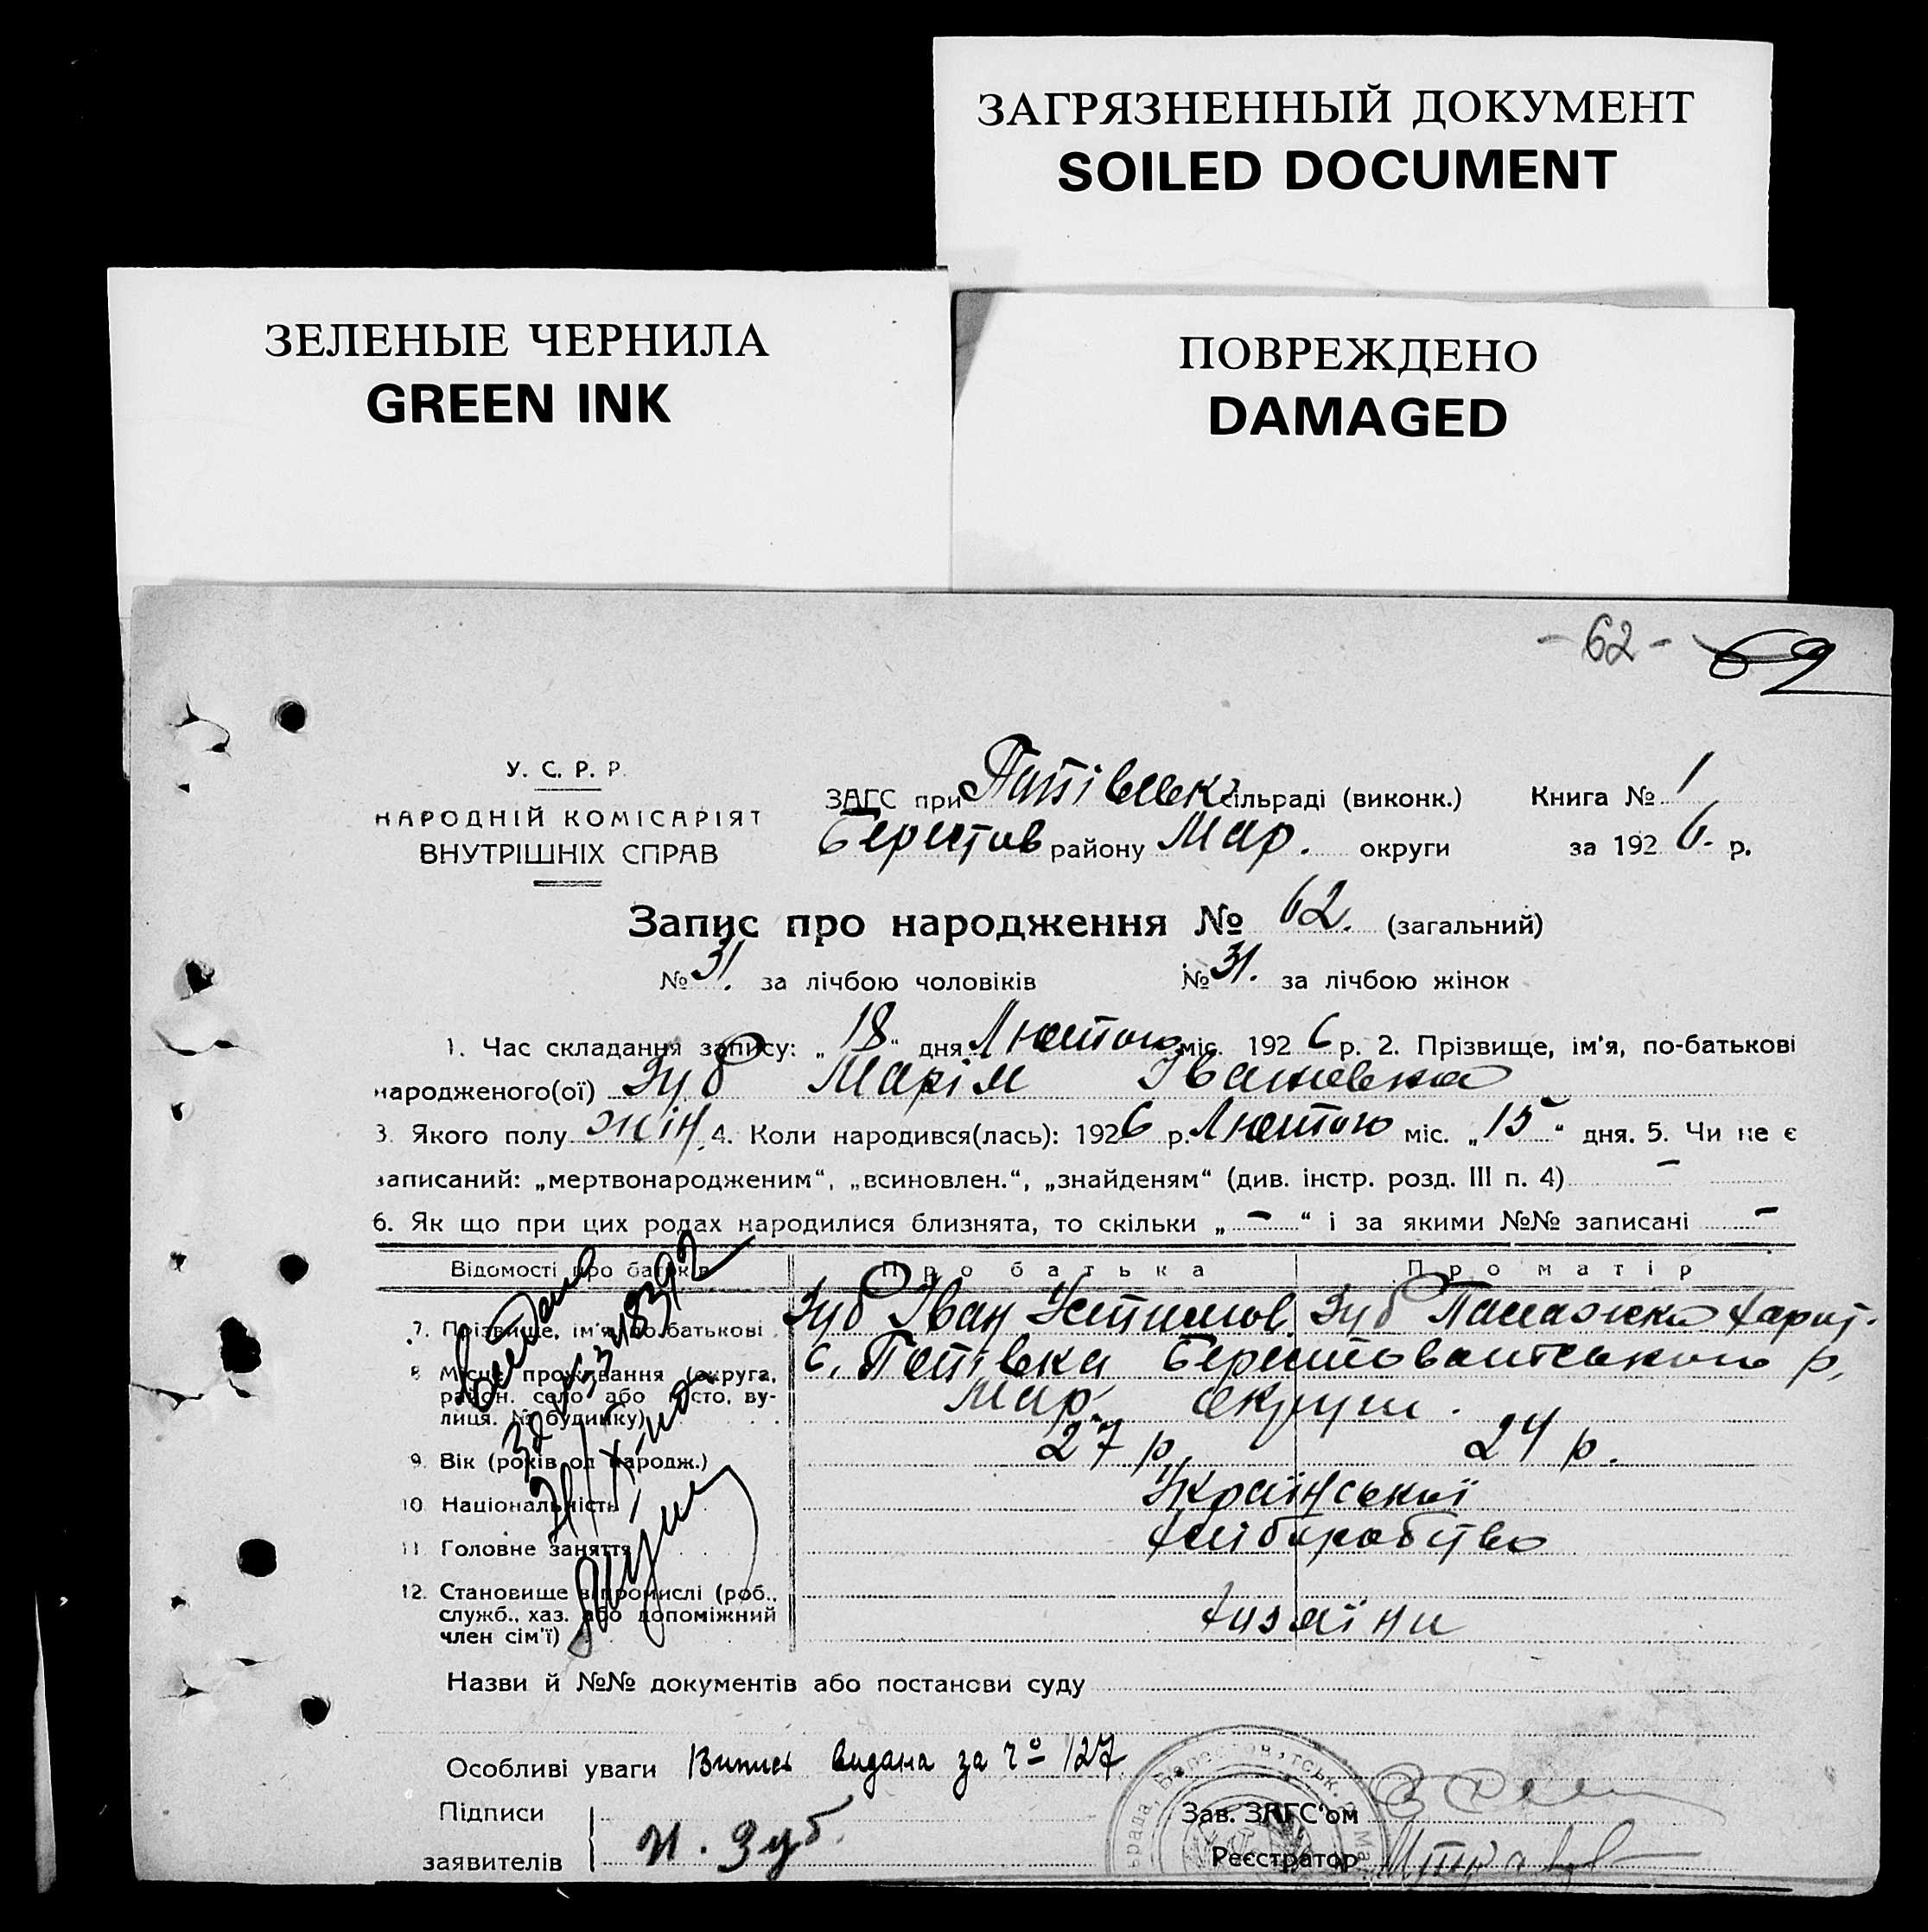 ЗАГРЯЗНЕННЫЙ ДОКУМЕНТ
SOILED DOCUMENT
ЗЕЛЕНЫЕ ЧЕРНИЛА
GREEN INK
ПОВРЕЖДЕНО
DAMAGED
- 62 - 69
У. С. Р. Р.
НАРОДНІЙ КОМІСАРІЯТ
ВНУТРІШНІХ СПРАВ
ЗАГС при сільраді (виконк.) Книга № 1
Берестов району Мар. округи за 1926. р.
Запис про народження № 62. (загальний)
№ 31. за лічбою чоловіків № 31. за лічбою жінок
1. Час складання запису: „18“ дня Лютого міс. 1926 р. 2. Прізвище, ім'я, по-батькові
народженого(ої) Зуб Марія Івановна
3. Якого полу жін. 4. Коли народився(лась): 1926 р. Лютого міс. „15“ дня. 5. Чи не є
записаний: „мертвонародженим“, „всиновлен.“, „знайденям“ (див. інстр. розд. III п. 4) —
6. Як що при цих родах народилися близнята, то скільки „—“ і за якими №№ записані —
Відомості про батьків Про батька Про матір
7. Прізвище, ім'я, по-батькові Зуб Іван Устимов. Зуб Парит.
8. Місце проживання (округа, район, село або місто, вулиця, № будинку) с. Потівка р.
Мар. округи.
9. Вік (років од народж.) 27 р. 24 р.
10. Національність Української
11. Головне заняття хліборобство
12. Становище в промислі (роб.,
служб., хаз. або допоміжний
член сім'ї) хазяїни
Назви й №№ документів або постанови суду
Особливі уваги Випись видана за № 127
Підписи
заявителів И. Зуб.
Зав. ЗАГС'ом
Реєстратор